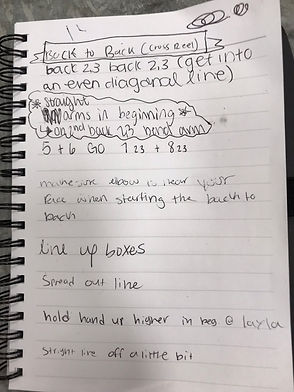 Back to Back (Cross Reel)
back 2,3 back 2,3 (get into
an even diagonal line)
* straight
arms in beginning *
→ on 2nd back 23 bend arm
5 + 6 GO 1 23 + 8 23
make sure elbow is near your
face when starting the back to
back
line up boxes
Spread out line
hold hand up higher in beg. @ layla
Stright line off a little bit